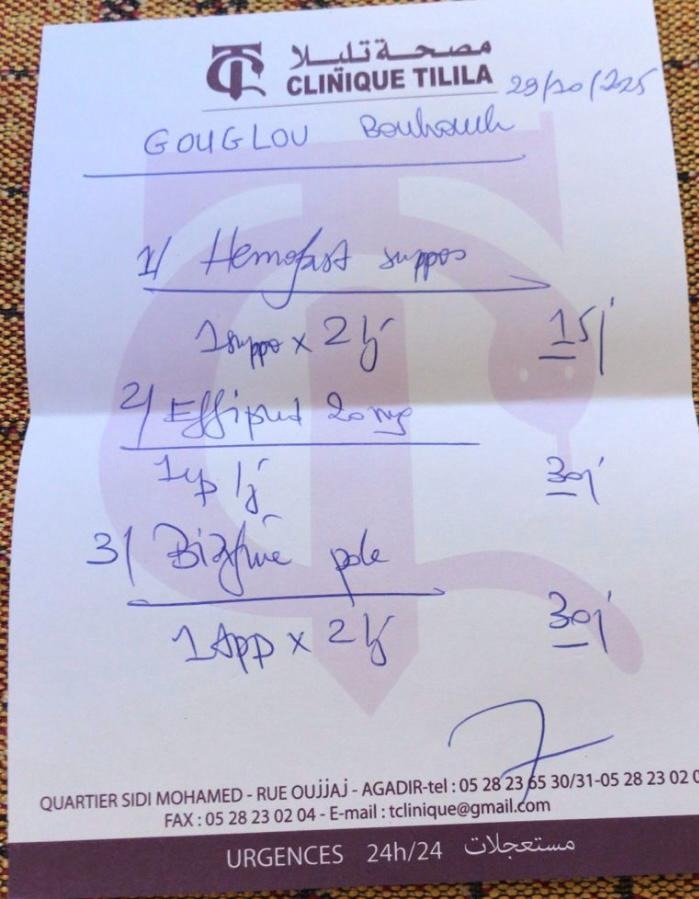 مصحة تليلا
CLINIQUE TILILA
29/10/2025
GOUGLOU
1/ Hemofast suppos
1 suppo x 2/j 15j
2/ Effipred 20 mg
1cp 1/j 30j
3/
1 App x 2/j 30j
QUARTIER SIDI MOHAMED - RUE OUJJAJ - AGADIR-tel : 05 28 23 65 30/31-05 28 23 02 0
FAX : 05 28 23 02 04 - E-mail : tclinique@gmail.com
URGENCES 24h/24 مستعجلات